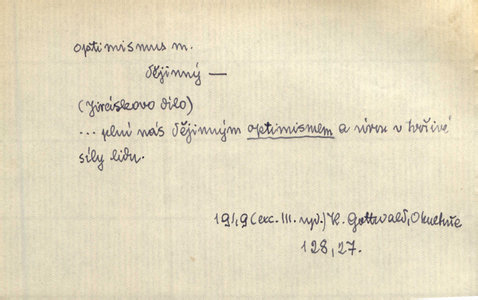 optimismus m.
dějinný —
(Jiráskovo dílo)
... plní nás dějinným optimismem a věrou v tvořivé
síly lidu.
1949 (exc. III. vyd.) K. Gottwald, O kultuře
128, 27.